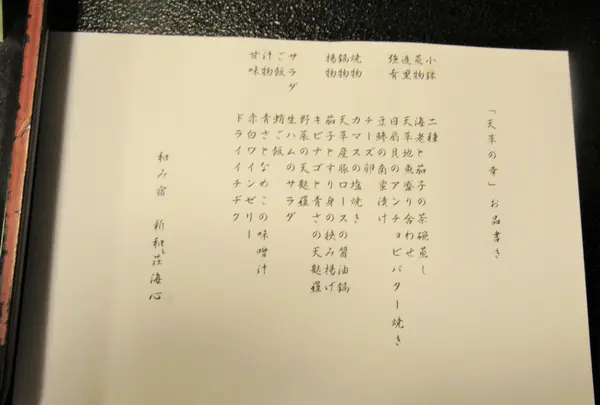 「天草の幸」お品書き
小鉢 二種
蒸物 海老と茄子の茶碗蒸し
造里 天草地魚盛り合わせ
強肴 日扇貝のアンチョビバター焼き
豆鯵の南蛮漬け
チーズ卵
焼物 カマスの塩焼き
鍋物 天草産豚ロースの醤油鍋
揚物 茄子とすり身の挟み揚げ
キビナゴと青さの天麩羅
野菜の天麩羅
サラダ 生ハムのサラダ
ご飯 蛸ご飯
汁物 青さとなめこの味噌汁
甘味 赤白ワインゼリー
ドライイチヂク
和み宿 新和荘海心